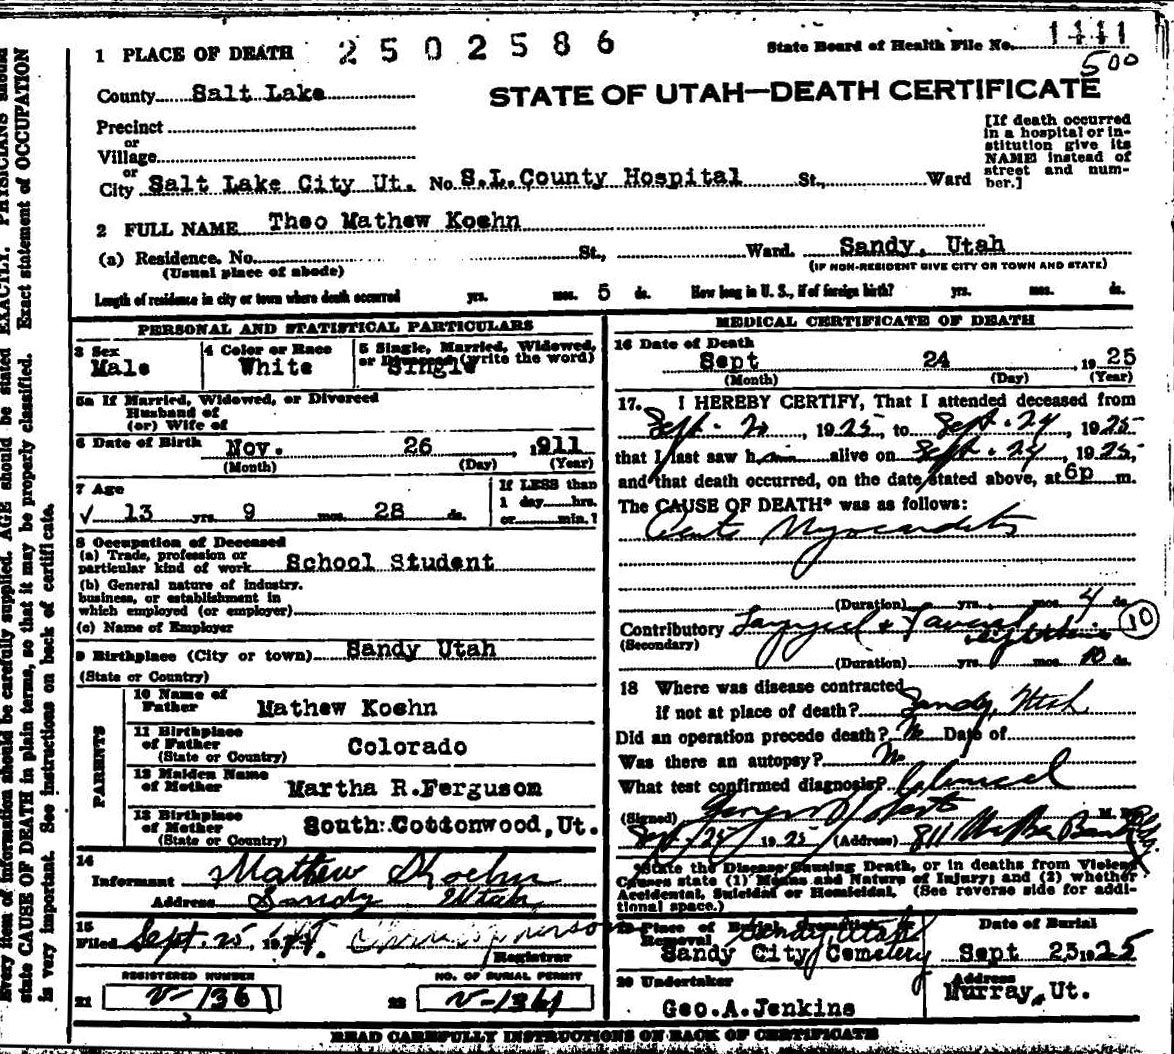 1 PLACE OF DEATH 2502586 State Board of Health File No. 1441
500
County Salt Lake STATE OF UTAH—DEATH CERTIFICATE
Precinct
or
Village
or
City Salt Lake City Ut. No S.L.County Hospital St., Ward
[If death occurred
in a hospital or in-
stitution give its
NAME instead of
street and num-
ber.]
2 FULL NAME Theo Mathew Koehn
(a) Residence. No. St., Ward. Sandy, Utah
(Usual place of abode) (IF NON-RESIDENT GIVE CITY OR TOWN AND STATE)
Length of residence in city or town where death occurred yrs. mos. 5 ds. How long in U. S., if of foreign birth? yrs. mos. ds.
PERSONAL AND STATISTICAL PARTICULARS
3 Sex
Male
4 Color or Race
White
5 Single, Married, Widowed,
or Divorced (write the word)
Single
5a If Married, Widowed, or Divorced
Husband of
(or) Wife of
6 Date of Birth Nov. 26 , 1911
(Month) (Day) (Year)
7 Age
13 yrs. 9 mos. 28 ds.
If LESS than
1 day hrs.
or min.?
8 Occupation of Deceased
(a) Trade, profession or
particular kind of work School Student
(b) General nature of industry.
business, or establishment in
which employed (or employer)
(c) Name of Employer
9 Birthplace (City or town) Sandy Utah
(State or Country)
PARENTS
10 Name of
Father Mathew Koehn
11 Birthplace
of Father Colorado
(State or Country)
12 Maiden Name
of Mother Martha R.Ferguson
13 Birthplace
of Mother South Cottonwood,Ut.
(State or Country)
14
Informant Mathew Koehn
Address Sandy Utah
15
Filed Sept. 25, 19
Registrar
REGISTERED NUMBER NO. OF BURIAL PERMIT
21 V-1361 22 V-1361
MEDICAL CERTIFICATE OF DEATH
16 Date of Death
Sept 24 , 1925
(Month) (Day) (Year)
17. I HEREBY CERTIFY, That I attended deceased from
Sept. 20, 1925, to Sept. 24, 1925
that I last saw him alive on Sept. 24, 1925,
and that death occurred, on the date stated above, at 6p m.
The CAUSE OF DEATH* was as follows:
Acute Myocarditis
(Duration) yrs. mos. 4 ds.
Contributory Laryngeal & 10
(Secondary)
(Duration) yrs. mos. 10 ds.
18 Where was disease contracted
if not at place of death? Sandy, Utah
Did an operation precede death? No Date of
Was there an autopsy? No
What test confirmed diagnosis? Clinical
(Signed) M. D.
Sept/25/1925 (Address) 811
*State the Disease Causing Death, or in deaths from Violent
Causes state (1) Means and Nature of Injury; and (2) whether
Accidental, Suicidal or Homicidal. (See reverse side for addi-
tional space.)
19 Place of Burial or
Removal Sandy Utah
Sandy City Cemetery
Date of Burial
Sept 25, 1925
20 Undertaker
Geo.A.Jenkins
Address
Murray, Ut.
READ CAREFULLY INSTRUCTIONS ON BACK OF CERTIFICATE
Every item of information should be carefully supplied. AGE should be stated EXACTLY. PHYSICIANS should
state CAUSE OF DEATH in plain terms, so that it may be properly classified. Exact statement of OCCUPATION
is very important. See instructions on back of certificate.